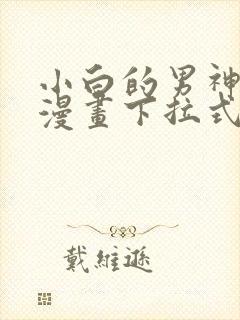 小白的男神
漫畫下拉式
戴維遜